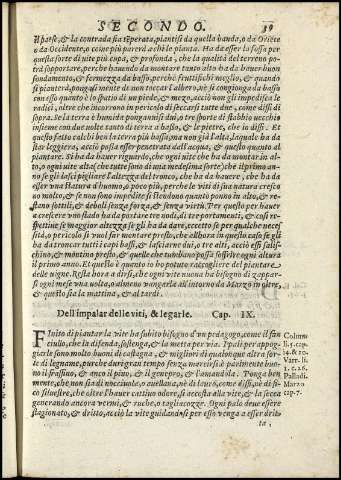 SECONDO. 39
il paese, & la contrada sia tēperata, piantisi da quella banda, o da Oriēte
o da Occidente, o come più parerà a chi le pianta. Ha da esser la fossa per
questa sorte di uite più cupa, & profonda, che la qualità del terreno po
trà sopportare, perche hauendo da montare tanto alto ha da hauer buon
fondamento, & fermezza da basso, perche fruttifichi meglio, & quando
si pianterà, pongasi mente di non toccar l'albero, nè si congionga da basso
con esso quanto è lo spatio di un piede, & mezo, acciò non gli impedisca le
radici, oltre che incorrono in pericolo di seccarsi tutte due, come dissi di
sopra. Se la terra è humida ponganuisi dui, o tre sporte di stabbio uecchio
insieme con due uolte tanto di terra a basso, & le pietre, che io dissi. Et
questo fatto calchi ben la terra più bassa, ma non già l'alta, laquale ha da
star leggiera, acciò possa esser penetrata dall'acqua, & questo quanto al
piantare. Si ha da hauer riguardo, che ogni uite che ha da montar in al-
to, o ogni uite alta (che tutte sono di una medesima sorte) che il primo an-
no se gli lasci pigliare l'altezza del tronco, che ha da hauere, che ha da
esser una statura d'huomo, o poco più, perche le viti di sua natura cresco
no molto, & se non sono impedite si stendono quanto ponno in alto, & re-
stano sottili, & deboli senza forza, & senza virtù. Però per hauer
a crescere uno stado ha da portare tre nodi, di tre portamenti, & così ri
spettiue se maggior altezza se gli ha da dare, eccetto se per qualche neces
sità, o pericolo si vuol far montare presto, che allhora in quella caso se gli
ha da troncar tutti i capi bassi, & lasciarne dui, o tre alti, acciò essi salis-
chino, & montino presto, & quelle che uorebbono possa sossolire ogni altura
il primo anno. Et quello è quanto io ho potuto raccogliere del piantare
delle uigne. Resta hora a dirsi, che ogni vite noua ha bisogno di zappar-
si ogni mese una uolta, o almeno vangarla all'intorno da Marzo in oltre,
& questo sia la mattina, & al tardi.
Dell'impalar delle viti, & legarle. Cap. IX.
FInito di piantar la vite ha subito bisogno d'un pedagogo, come il fan
ciullo, che la difenda, sostenga, & la metta per via. I pali per appog-
giarle sono molto buoni di castagna, & migliori di qualunque altra sor-
te di legname, purche durigran tempo senza marcirsi è parimente buo-
no il frassino, & anco il pino, & il genepro, & l'amandola. Ponga ben
mente, che non sia di nocciuolo, o auellana, nè di lauro, come dissi, nè di fi-
co siluestre, che oltre l'hauer cattiuo odore, si accosta alla vite, & la secca
generando ancora vermi, & ruche, o tagliacozze. Ogni palo deue essere
stagionato, & dritto, acciò la vite guidandosi per esso venga a esser drit-
ta,
Colum.
l.5.cap.
14.&20.
Varr.li.
1. c. 26.
Palladi.
Marzo
cap.7.